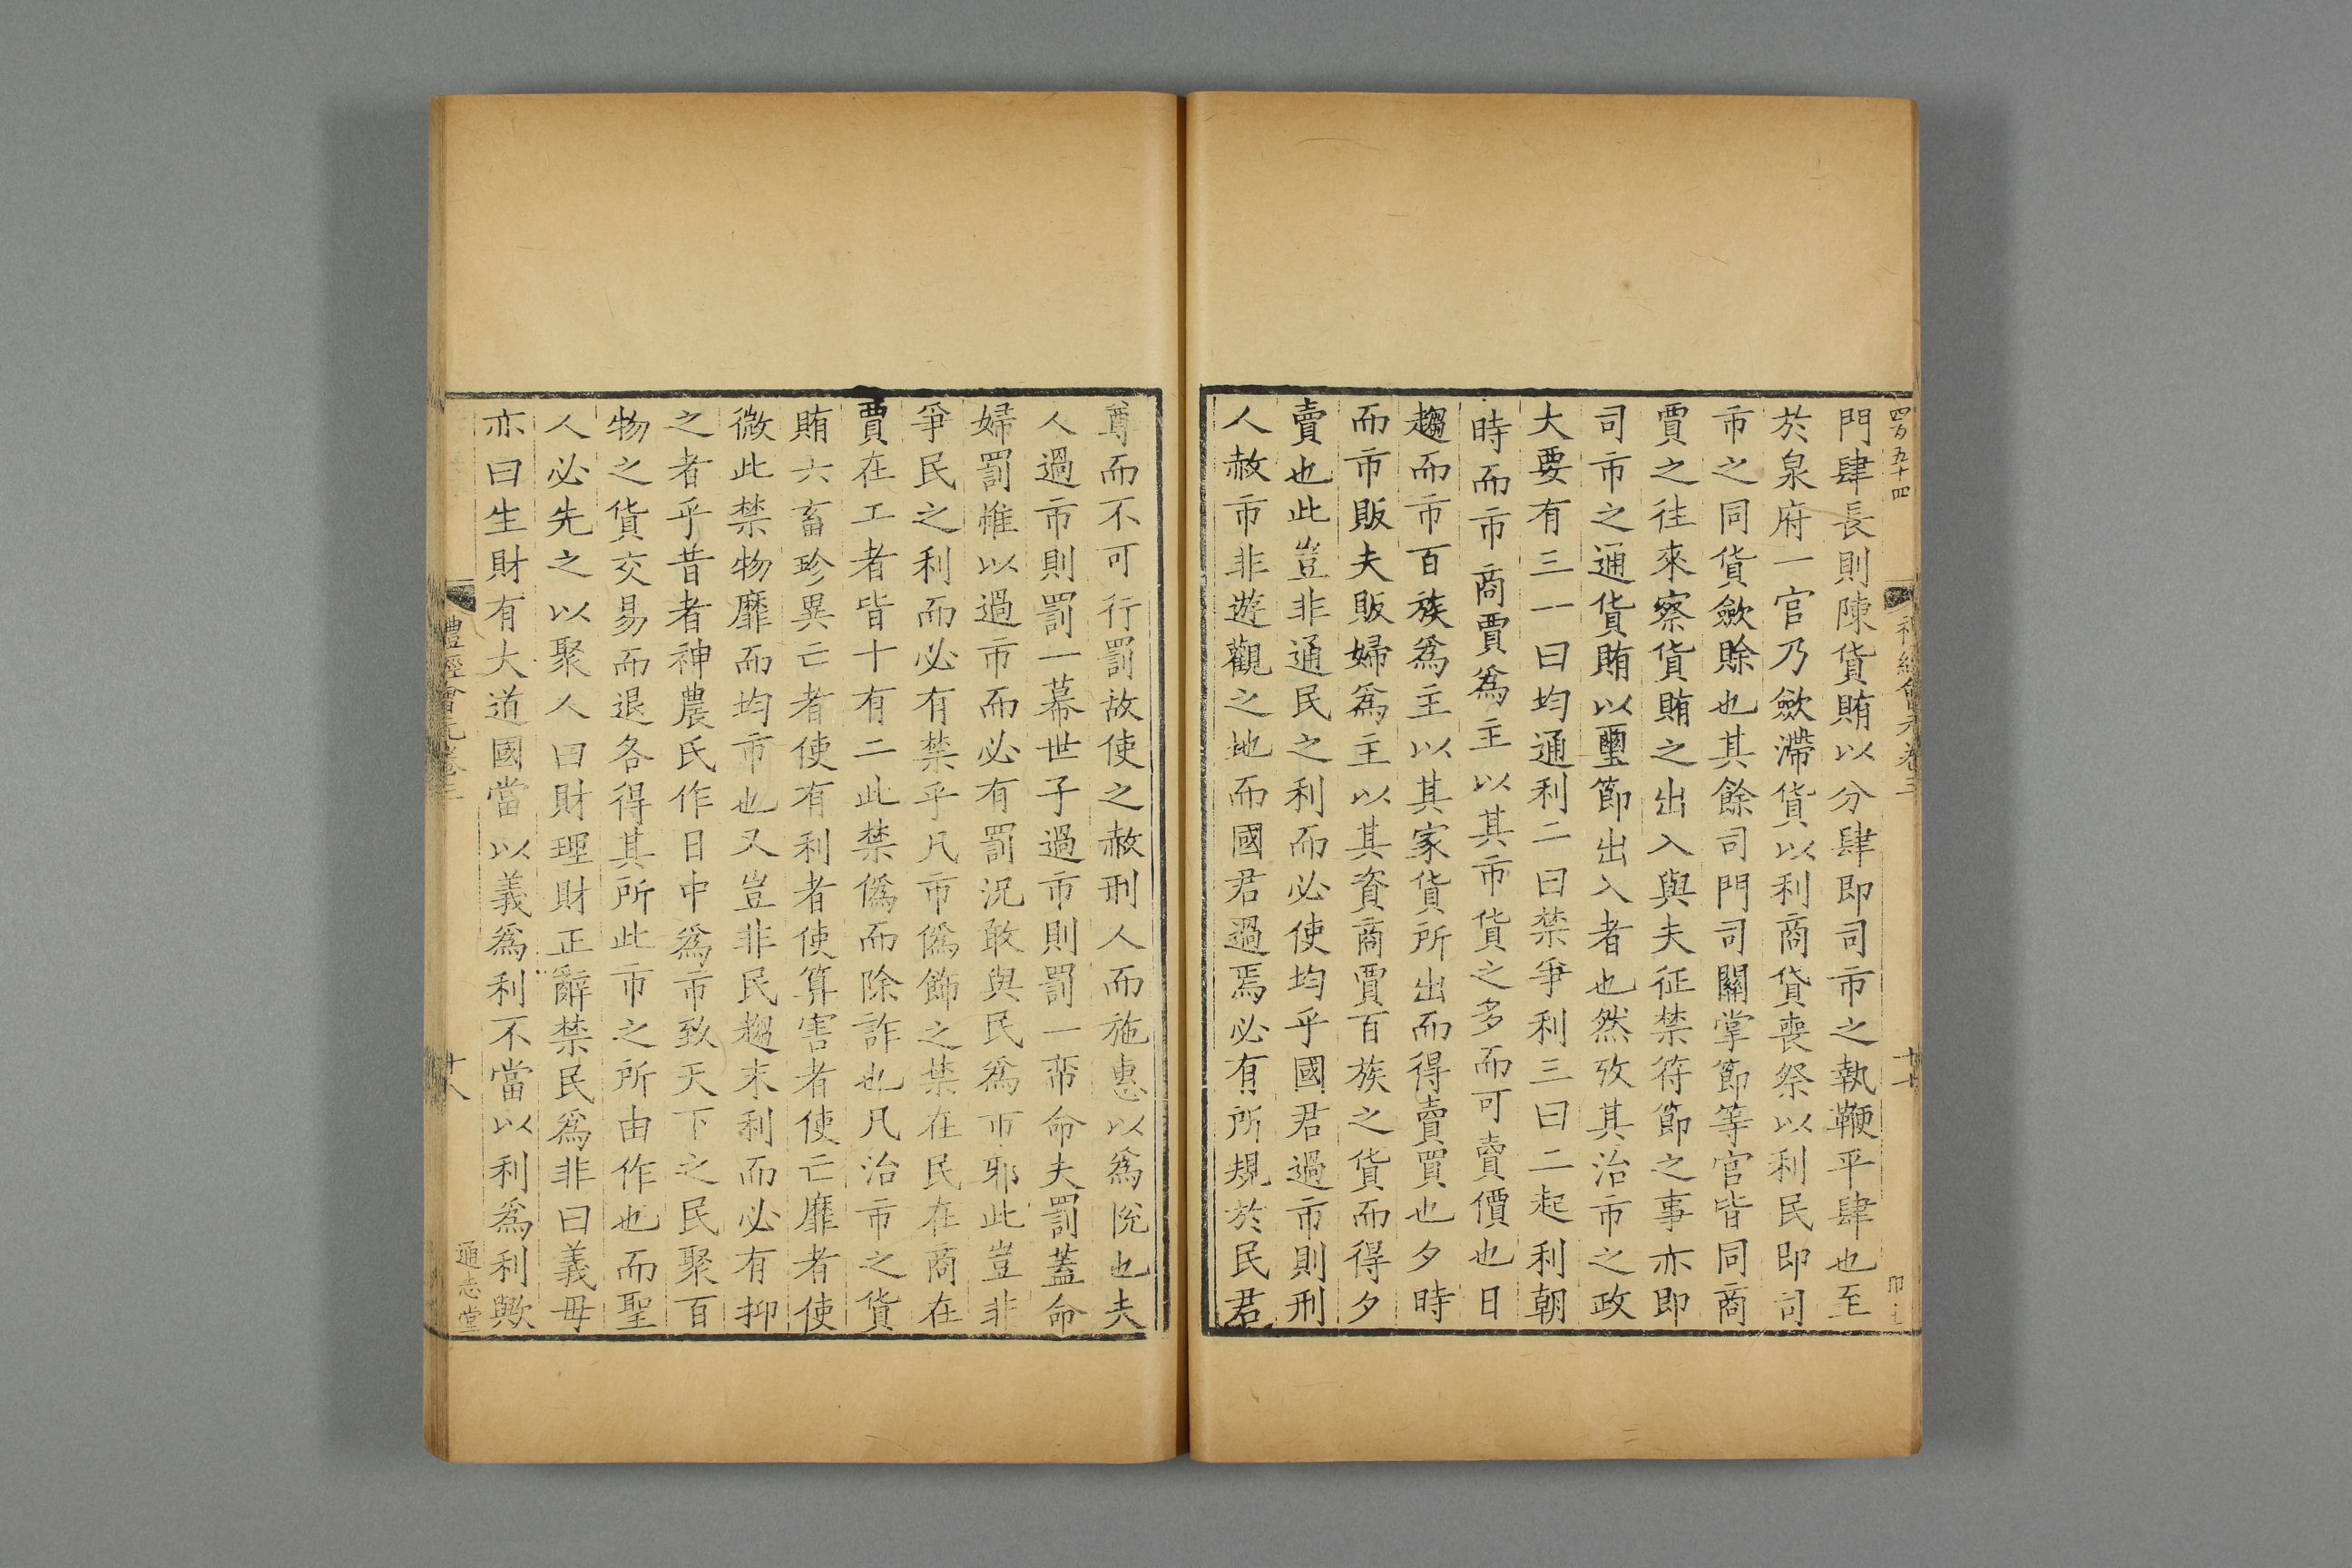 四百五十四
門肆長則陳貨賄以分肆即司市之執鞭平肆也至
於泉府一官乃斂滯貨以利商貸喪祭以利民即司
市之同貨斂賒也其餘司門司關掌節等官皆同商
賈之往來察貨賄之出入與夫征禁符節之事亦即
司市之通貨賄以璽節出入者也然攷其治市之政
大要有三一曰均通利二曰禁爭利三曰二起利朝
時而市商賈爲主以其市貨之多而可賣價也日
趨而市百族爲主以其家貨所出而得賣買也夕時
而市販夫販婦爲主以其資商賈百族之貨而得夕
賣也此豈非通民之利而必使均乎國君過市則刑
人赦市非遊觀之地而國君過焉必有所規於民君
尊而不可行罰故使之赦刑人而施惠以爲悅也夫
人過市則罰一幕世子過市則罰一帟命夫罰蓋命
婦罰帷以過市而必有罰況敢與民爲市邪此豈非
爭民之利而必有禁乎凡市僞飾之禁在民在商在
賈在工者皆十有二此禁僞而除詐也凡治市之貨
賄六畜珍異亡者使有利者使算害者使亡靡者使
微此禁物靡而均市也又豈非民趨末利而必有抑
之者乎昔者神農氏作日中爲市致天下之民聚百
物之貨交易而退各得其所此市之所由作也而聖
人必先之以聚人曰財理財正辭禁民爲非曰義毋
亦曰生財有大道國當以義爲利不當以利爲利歟
禮經會元卷三
十八
通志堂